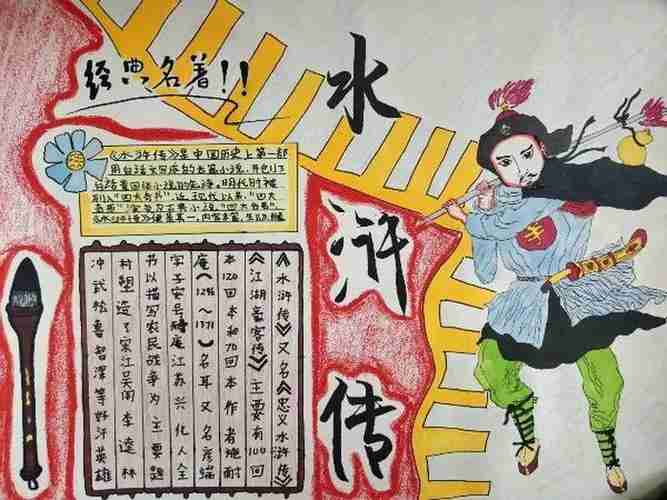 经典名著!!
水浒传
《水浒传》是中国历史上第一部
用白话文写成的长篇小说,开创了
白话章回体小说的先河,明代时被
列入"四大奇书"近、现代以来,"四大
奇书"演变为古典小说"四大名著"
《水浒传》便居其一,内容丰富,生动
《水浒传》又名《忠义水浒传》
《江湖豪客传》主要有100回
本120回本和70回本作者施耐
庵(1296~1371)名耳又名彦端
字子安号耐庵江苏兴化人全
书以描写农民战争为主要题
村塑造了宋江吴用李逵林
冲武松鲁智深等好汉英雄